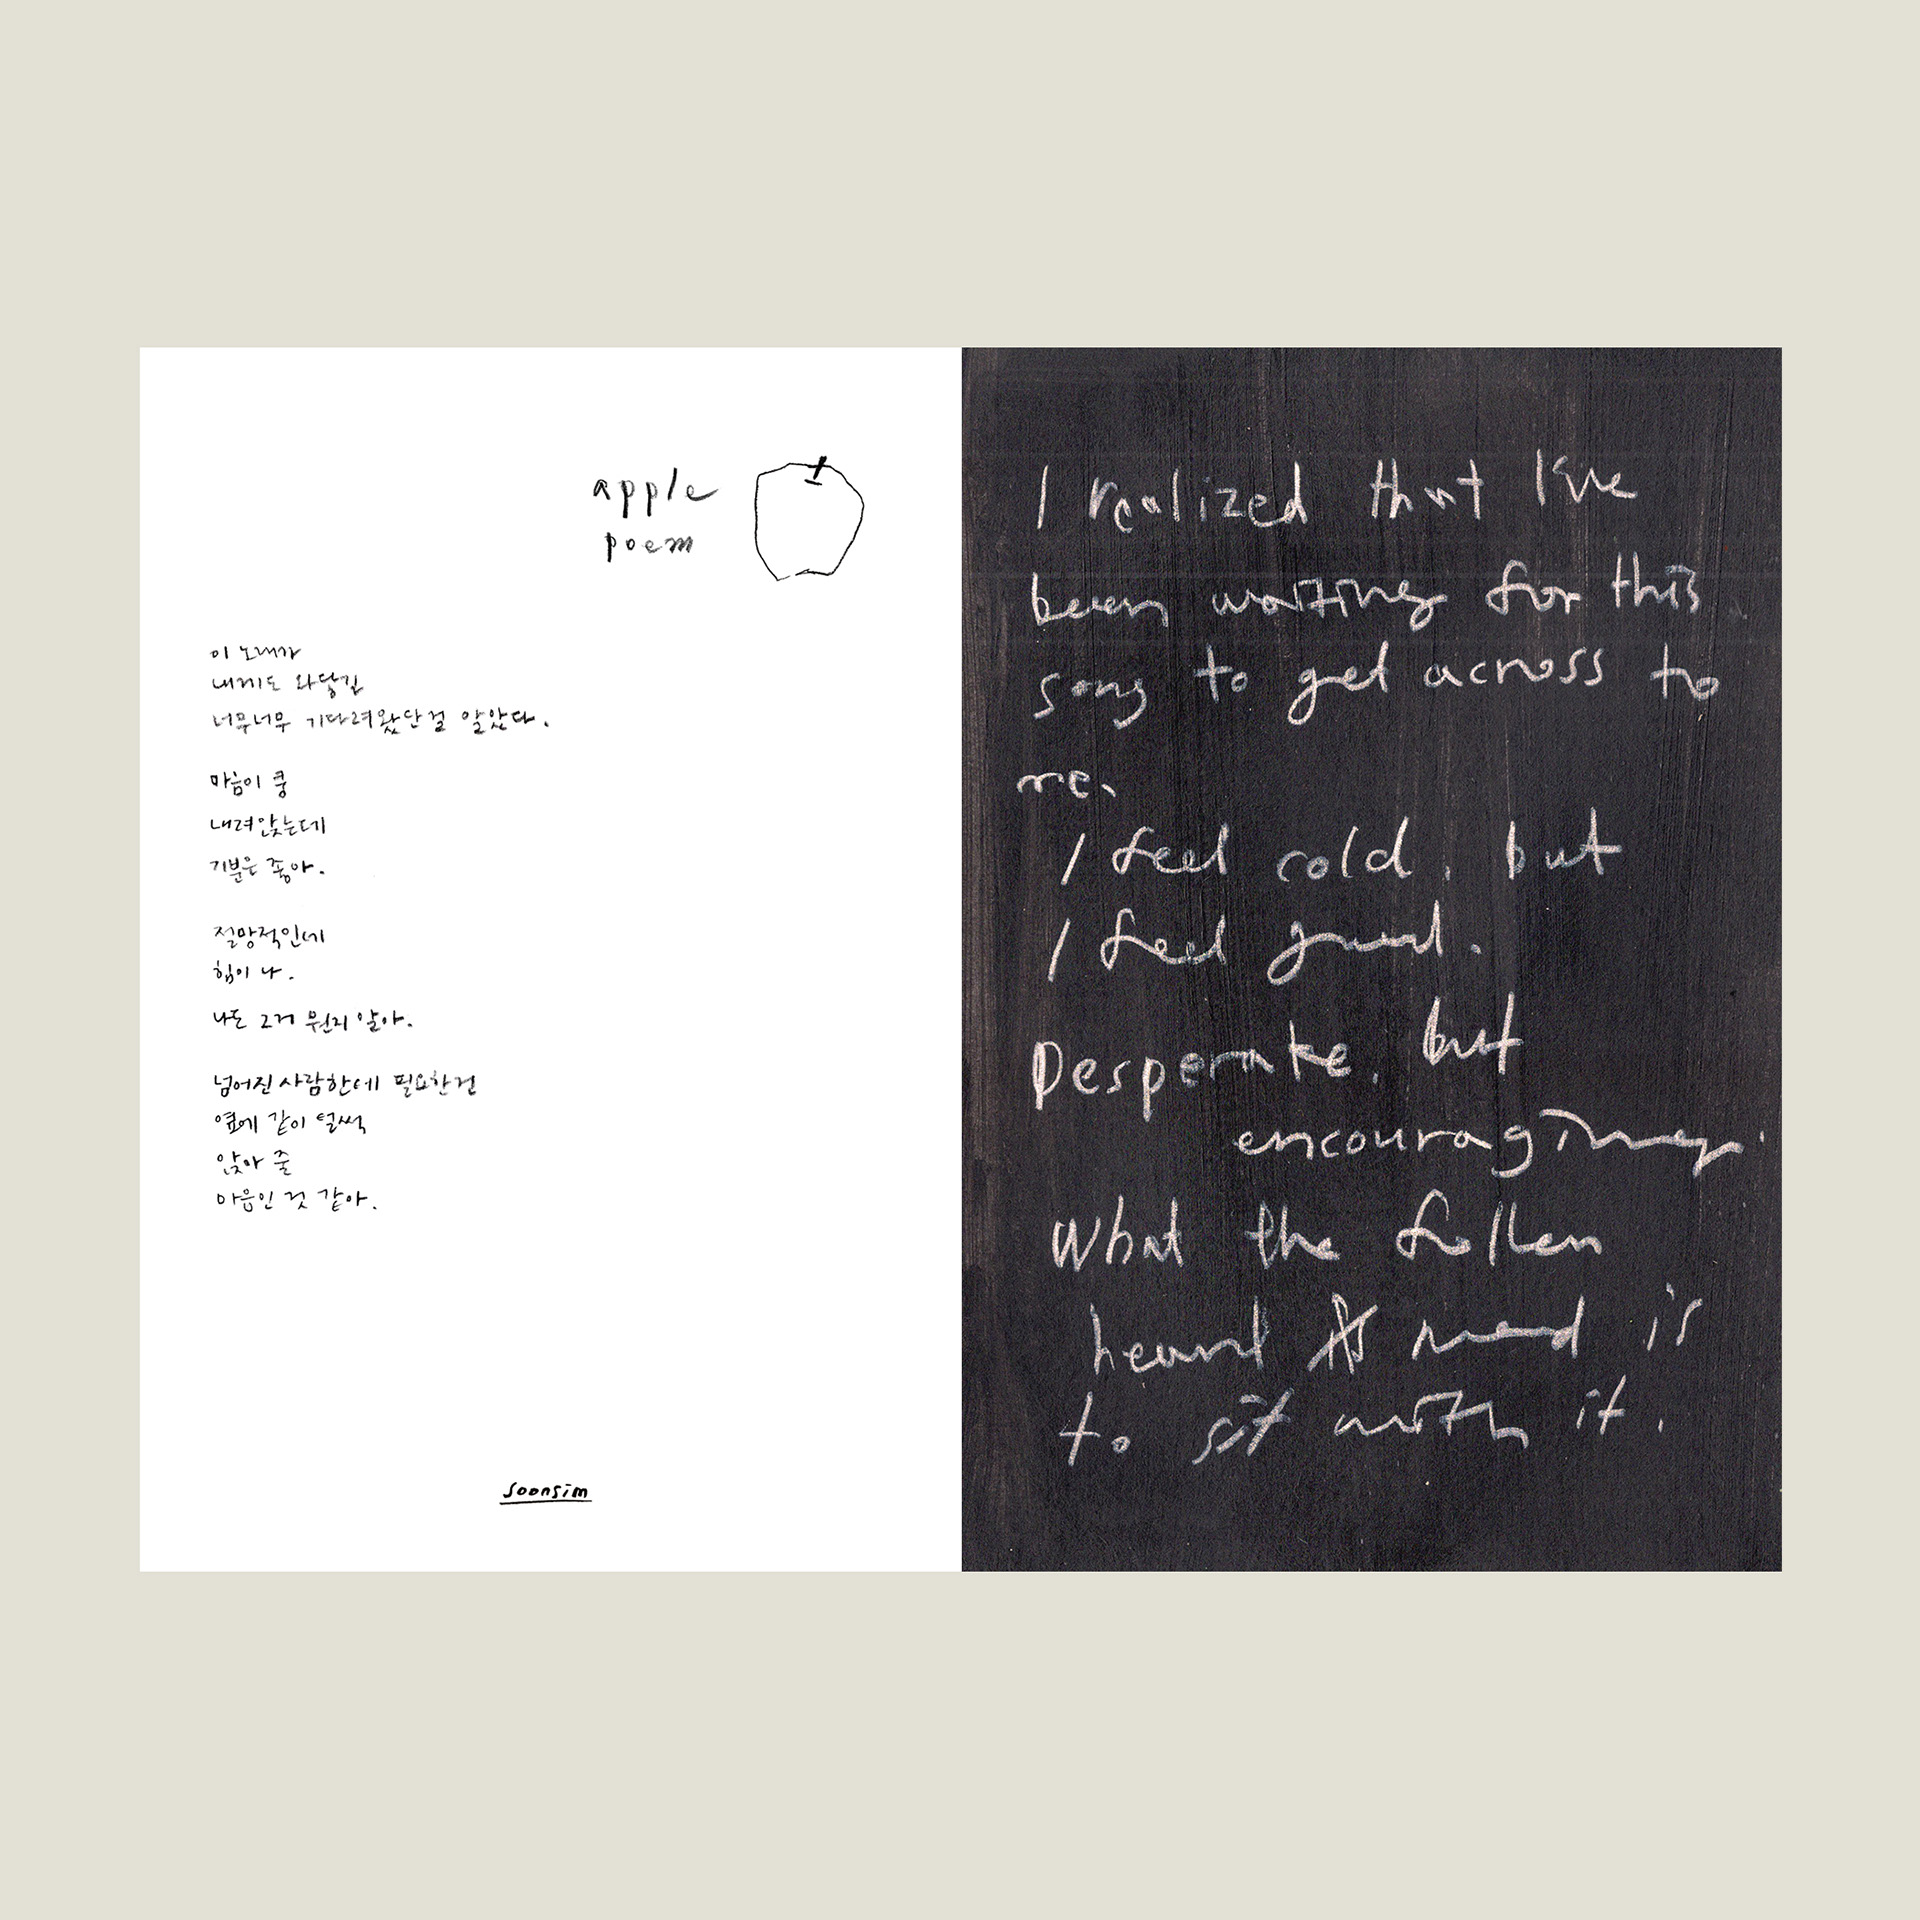 apple
poem
이 노래가
내게도 와닿길
너무너무 기다려왔단걸 알았다.
마음이 쿵
내려앉는데
기분은 좋아.
절망적인데
힘이 나.
나도 그거 뭔지 알아.
넘어진 사람한테 필요한건
옆에 같이 털썩
앉아 줄
마음인 것 같아.
soonsim
I realized that I've
been waiting for this
song to get across to
me.
I feel cold, but
I feel good.
Desperate, but
encouraging.
What the fallen
heart need is
to sit with it.